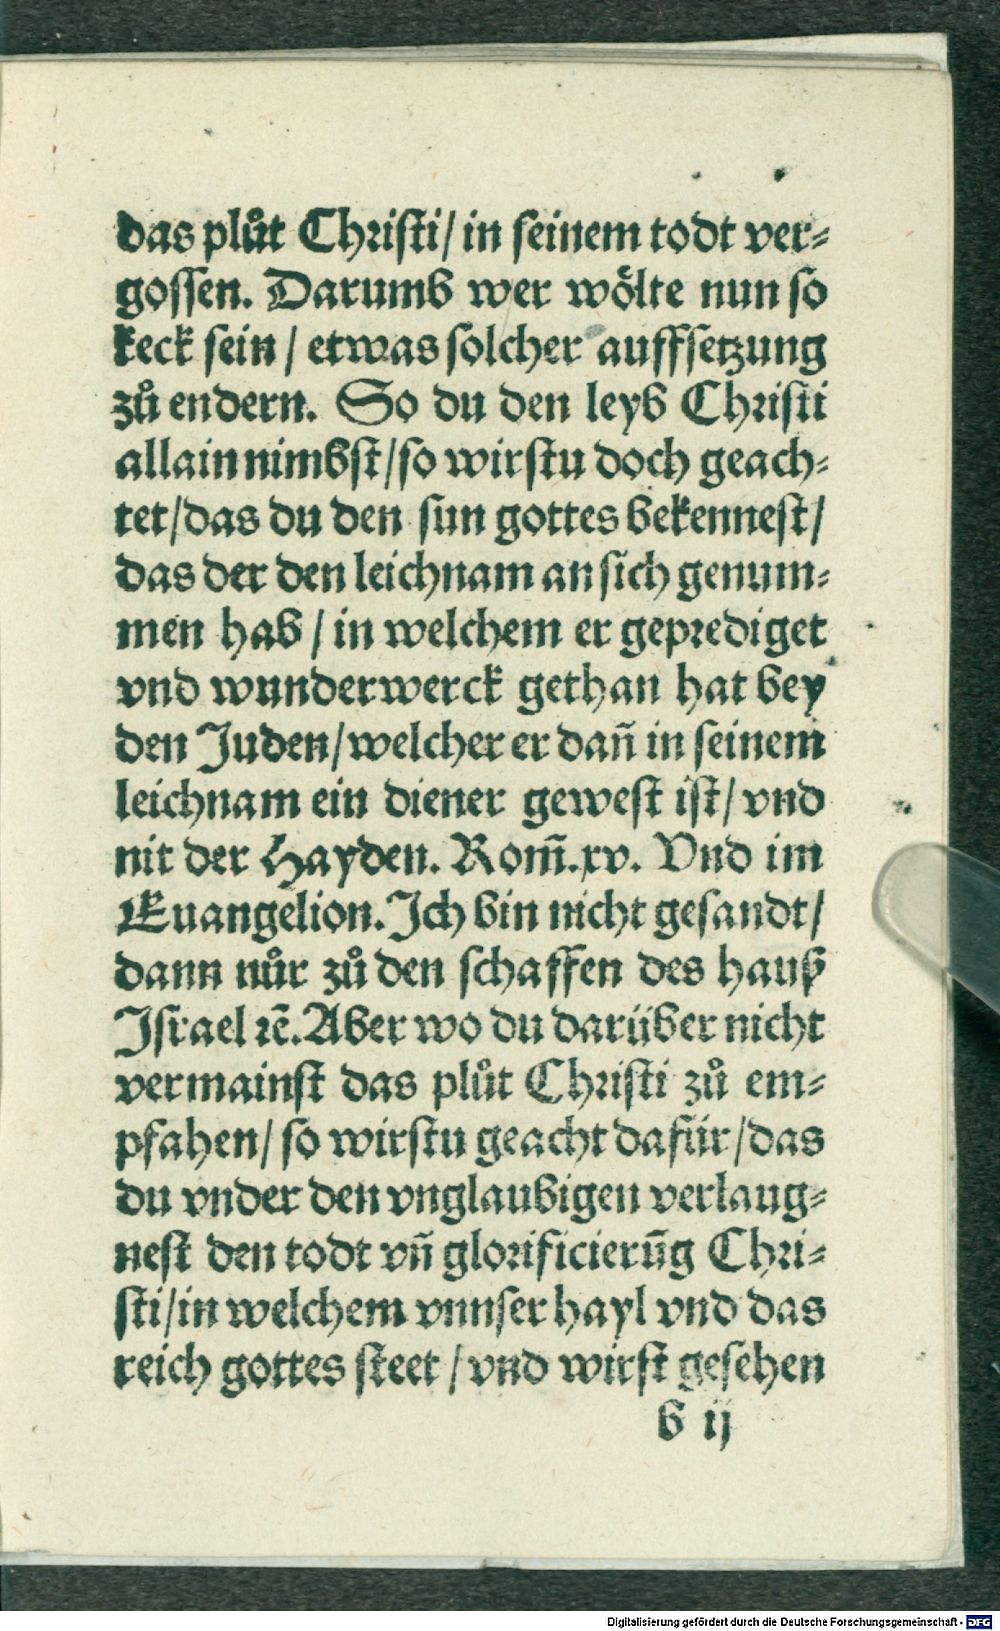 das plůt Christi/ in seinem todt ver⸗
gossen. Darumb wer wölte nun so
keck sein / etwas solcher auffsetzung
zů endern. So du den leyb Christi
allain nimbst/so wirstu doch geach⸗
tet/das du den sun gottes bekennest/
das der den leichnam an sich genum⸗
men hab / in welchem er geprediget
vnd wunderwerck gethan hat bey
den Juden/welcher er dañ in seinem
leichnam ein diener gewest ist/ vnd
nit der Hayden. Rom̃.xv. Vnd im
Euangelion. Ich bin nicht gesandt/
dann nůr zů den schaffen des hauß
Israel ꝛc̃. Aber wo du darüber nicht
vermainst das plůt Christi zů em⸗
pfahen/ so wirstu geacht dafür/das
du vnder den vnglaubigen verlaug⸗
nest den todt vñ glorificierũg Chri⸗
sti/in welchem vnnser hayl vnd das
reich gottes steet / vnd wirst gesehen
b ij
Digitalisierung gefördert durch die Deutsche Forschungsgemeinschaft - DFG